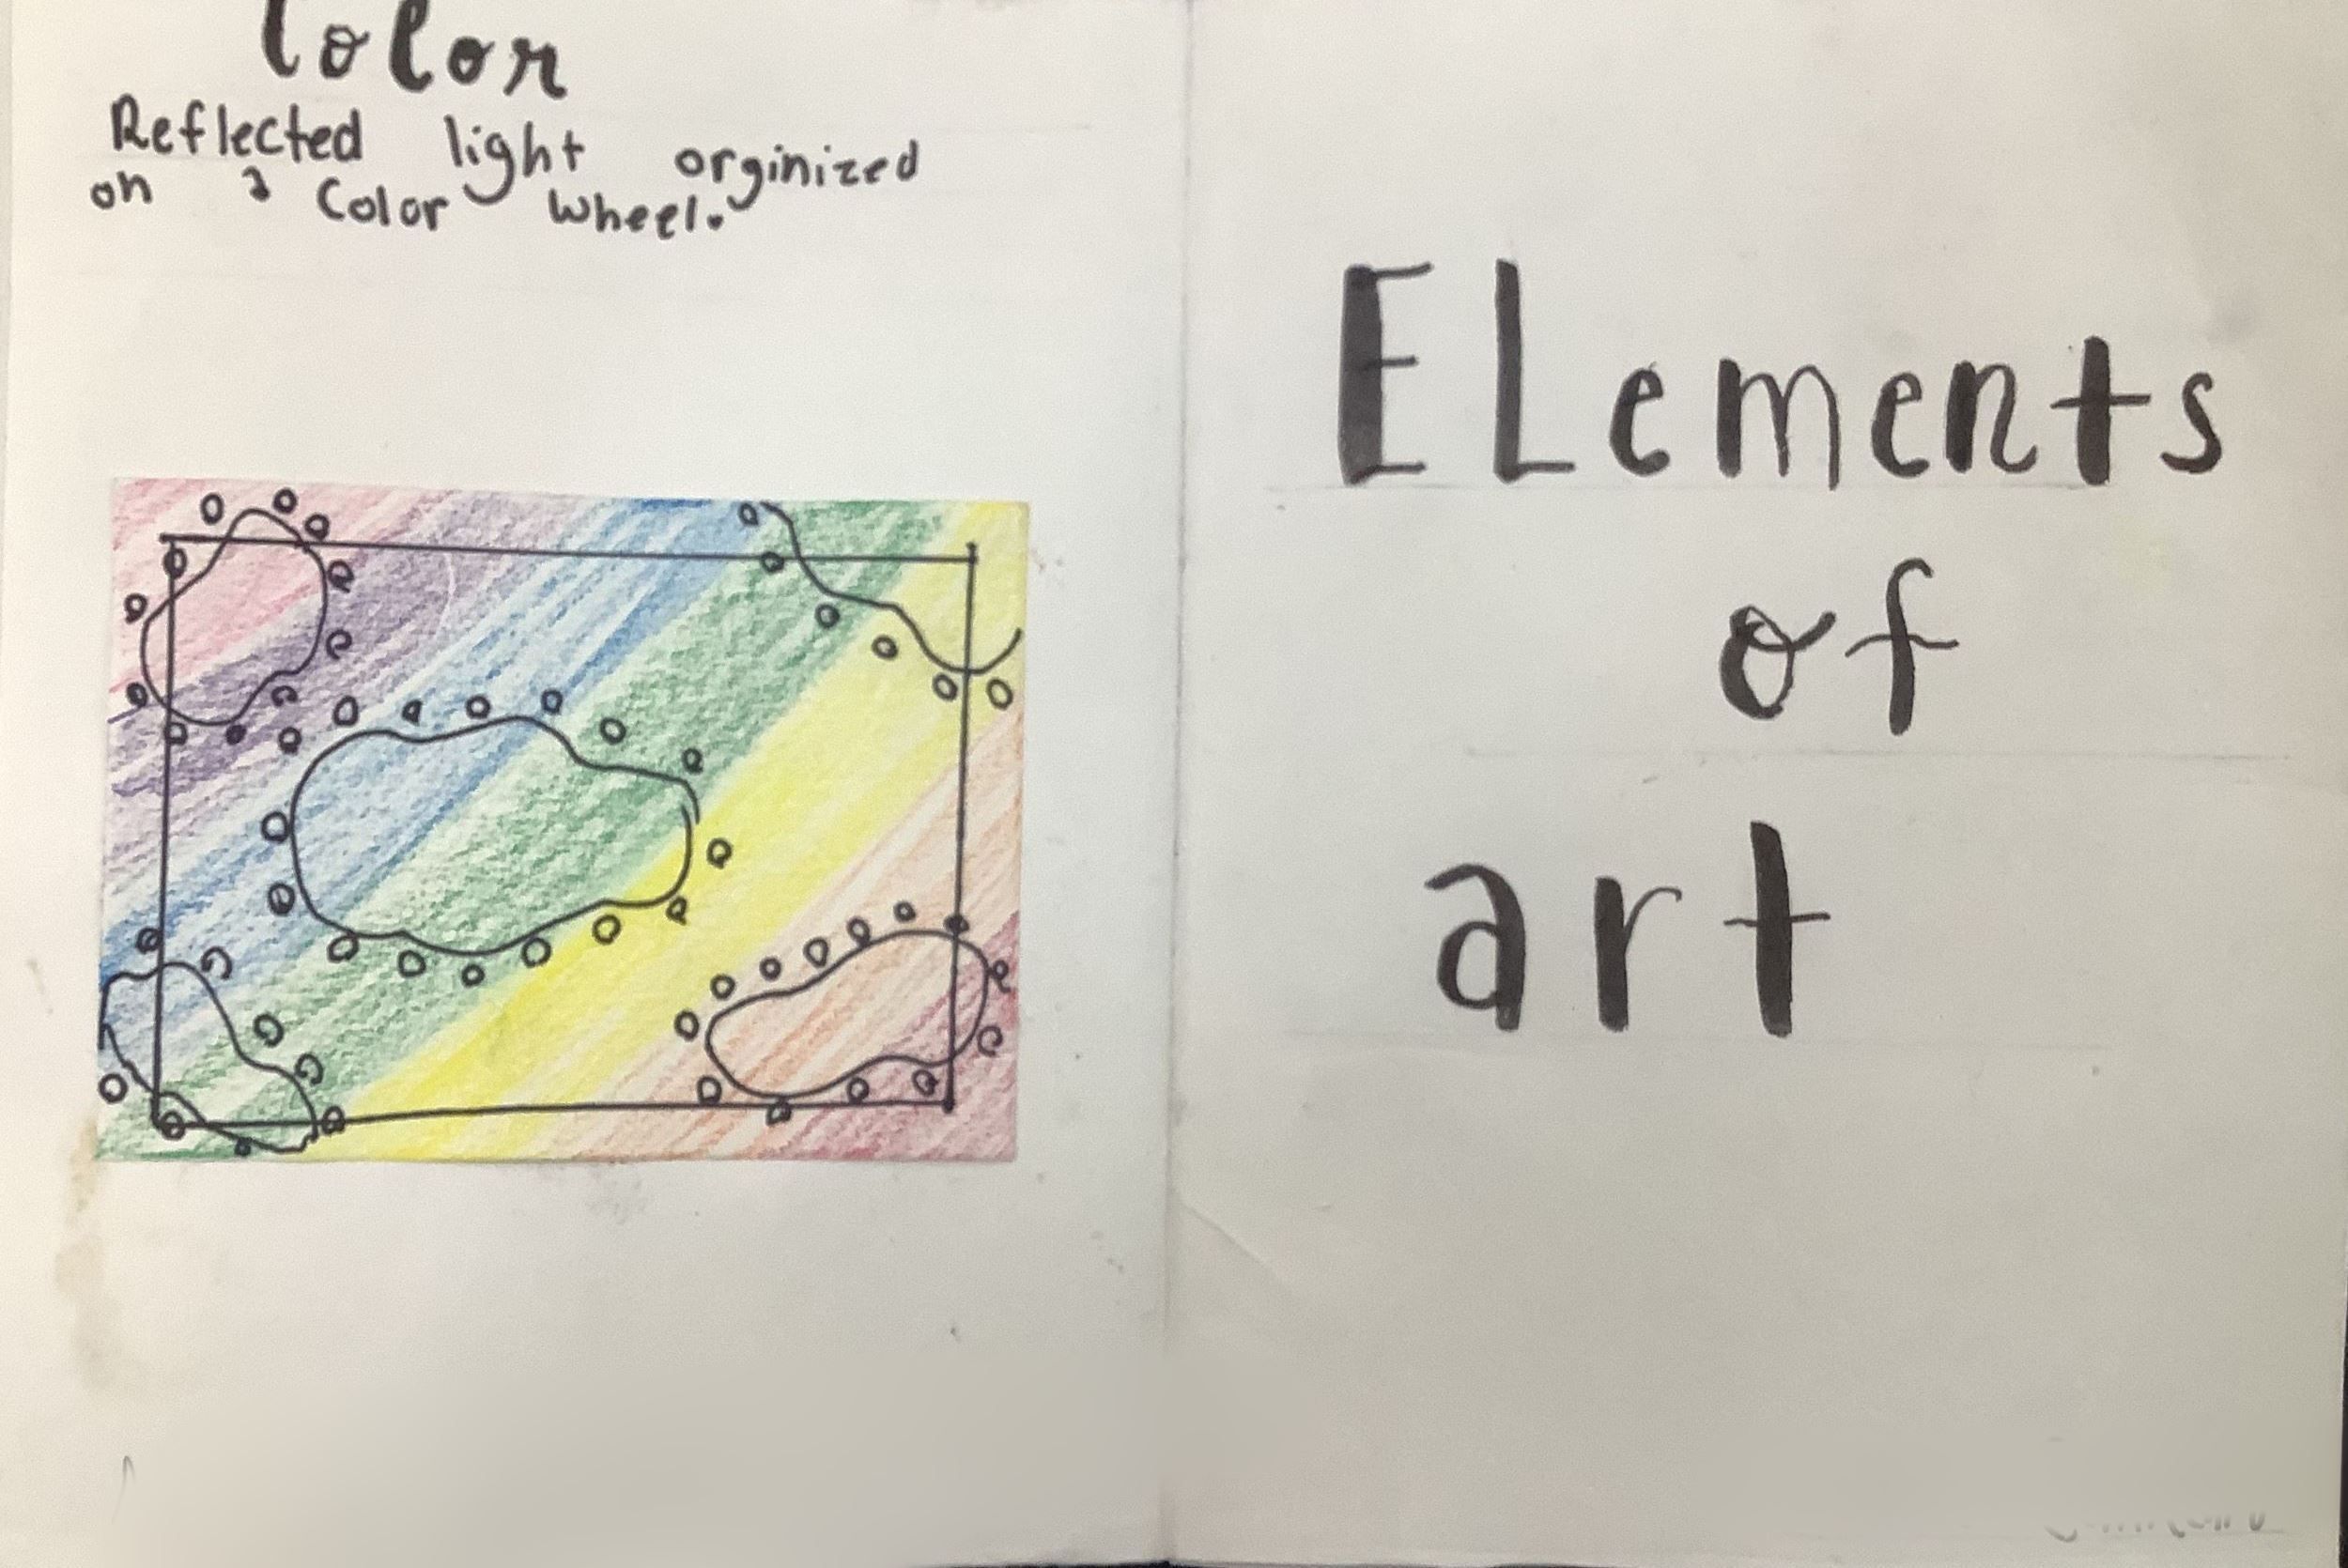 Color
Reflected light orginized
on a Color wheel.
ELements
of
art